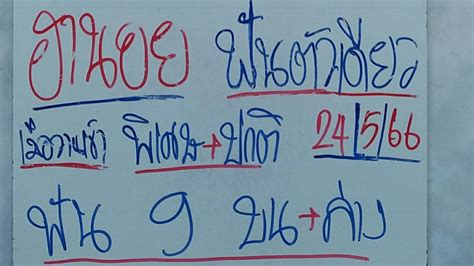 ฮานอย ฟันตัวเดียว
เมื่อวานเข้า พิเศษ→ปกติ 24/5/66
ฟัน 9 บน→ล่าง